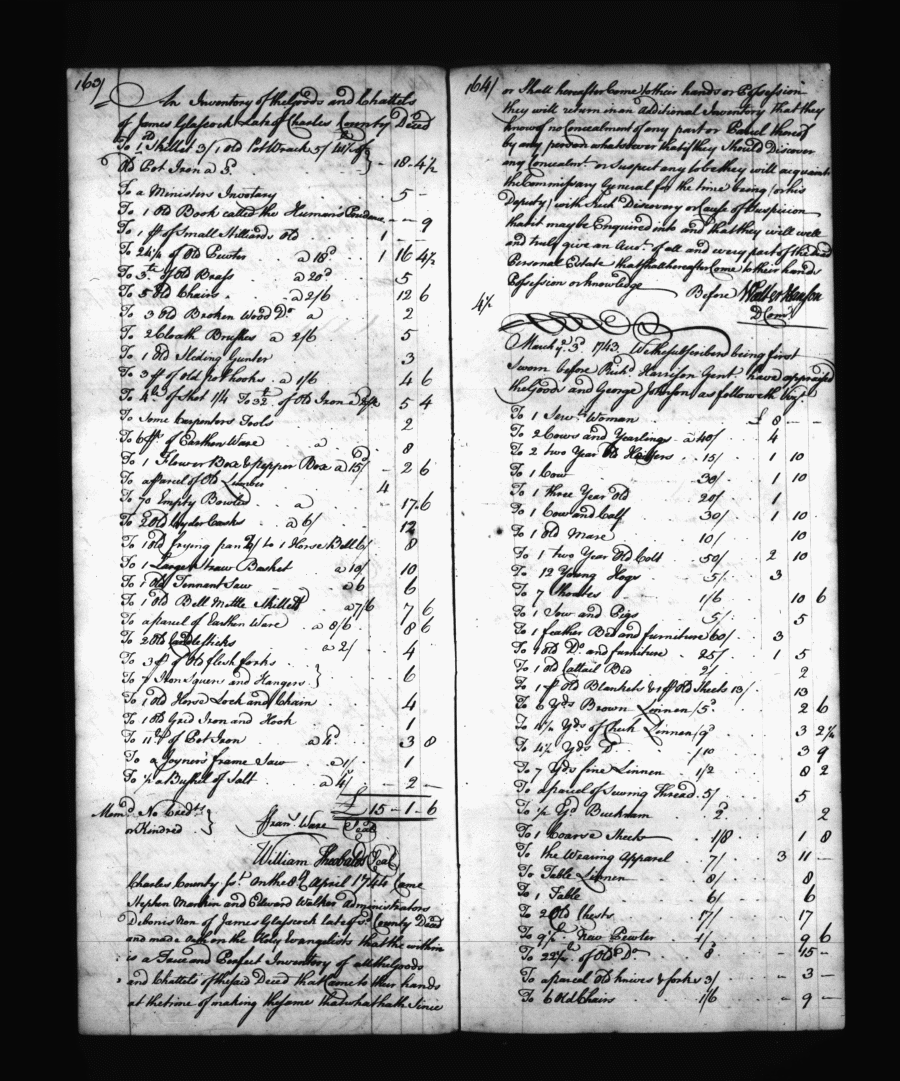 163/
An Inventory of the Goods and Chattels
of James Glascock Late of Charles County Decd
To 1 Skillet 3/ 1 old Pot Wrack 5/
Old Pot Iron a 18 - 4½
To a Ministers Inventory 5 -
To 1 Old Book called the Human - - 9
To 1 of Small Stillards old 1 -
To 24½ of Old Pewter a 18d 1 16 4½
To 3 of Old Brass a 20d 5
To 5 Old Chairs a 2/6 12 6
To 3 Old Broken Wood Do a 2
To 2 Cloath Brushes a 2/6 5
To 1 Old Sleding Gunter 3
To 3 of old pothooks a 1/6 4 6
To 4 of Shot 1/4 To 32 of Old Iron a 5 4
To Some Carpenters Tools 2
To 6 of Earthen Ware a 8
To 1 Flower Box & Pepper Box a 15d 2 6
To a parcel of Old Lumber 4
To 70 Empty Bowles a 17 6
To 2 Old Cyder Casks a 6/ 12
To 1 Old frying pan 2/ to 1 Horse Bell 6/ 8
To 1 Large Straw Basket a 10/ 10
To 1 Old Tennant Saw a 6 6
To 1 Old Bell Mettle Skillet a 7/6 7 6
To a parcel of Earthen Ware a 8/6 8 6
To 2 Old Candlesticks a 2/ 4
To 3 of Old flesh forks
To 7 Iron Squers and Hangers 6
To 1 Old Horse Lock and Chain 4
To 1 Old Grid Iron and Hook 1
To 11 of Pot Iron a 4d 3 8
To a Joyners frame Saw a 1/ 1
To ½ a Bushel of Salt a 4/ - 2 -
£ 15 - 1 - 6
Momd No Credrs
or Kindred Fran. Ware Seal
William Theobalds Seal
Charles County Sst. On the 8d April 1744 Came
Stephen Mankin and Edward Walker Administrators
Debonis Non of James Glasscock late of sd County Decd
and made Oath on the Holy Evangelists that the within
is a Just and Perfect Inventory of all the Goods
and Chattels of the sd Deced that Came to their hands
at the time of making the same that what hath Since
164/
or Shall hereafter Come to their hands or Possession
they will return in an Additional Inventory that they
know of no Concealment of any part or Parcel thereof
by any person whatsoever that if they Should Discover
any Concealmt. or Suspect any to be they will acquaint
the Commissary General for the time being (or his
Deputy) with Such Discovery or Cause of Suspicion
that it may be Enquired into and that they will well
and truly give an Acct. of all and every part of the decd
Personal Estate that shall hereafter Come to their hands
Possession or knowledge Before Walter Hanson
4½ D Comy
March ye 3d 1743 We the Subscribers being first
Sworn before Richd Harrison Gent. have appraised
the Goods and George Johnson as followeth Vizt.
To 1 Servt Woman £ 8 - -
To 2 Cows and Yearlings a 40/ 4
To 2 two Year Old Heiffers 15/ 1 10
To 1 Cow 30/ 1 10
To 1 three Year Old 20/ 1
To 1 Cow and Calf 30/ 1 10
To 1 Old Mare 10/ 10
To 1 two Year Old Colt 50/ 2 10
To 12 Young Hogs 5/ 3
To 7 Shoates 1/6 10 6
To 1 Sow and Pigs 5/ 5
To 1 feather Bed and furniture 60/ 3
To 1 old Do and furniture 25/ 1 5
To 1 Old Cattail Bed 2/ 2
To 1 pr Old Blankets & 1 pr Old Sheets 13/ 13
To 6 Yds Brown Linnen /5d 2 6
To 4½ Yds of Check Linnen /9d 3 2½
To 4½ Yds Do /10 3 9
To 7 Yds fine Linnen 1/2 8 2
To a parcel of Sewing Thread 5/ 5
To ½ Yd Buckram 2d 2
To 1 Coarse Sheet 1/8 1 8
To the Wearing Apparel 7/ 3 11 -
To Table Linnen 8/ 8
To 1 Table 6/ 6
To 2 Old Chests 17/ 17
To 9½ New Pewter 1/ 9 6
To 22½ of Old Do 8 - 15 -
To a parcel Old knives & forks 3/ - 3 -
To 6 Old Chairs 1/6 - 9 -